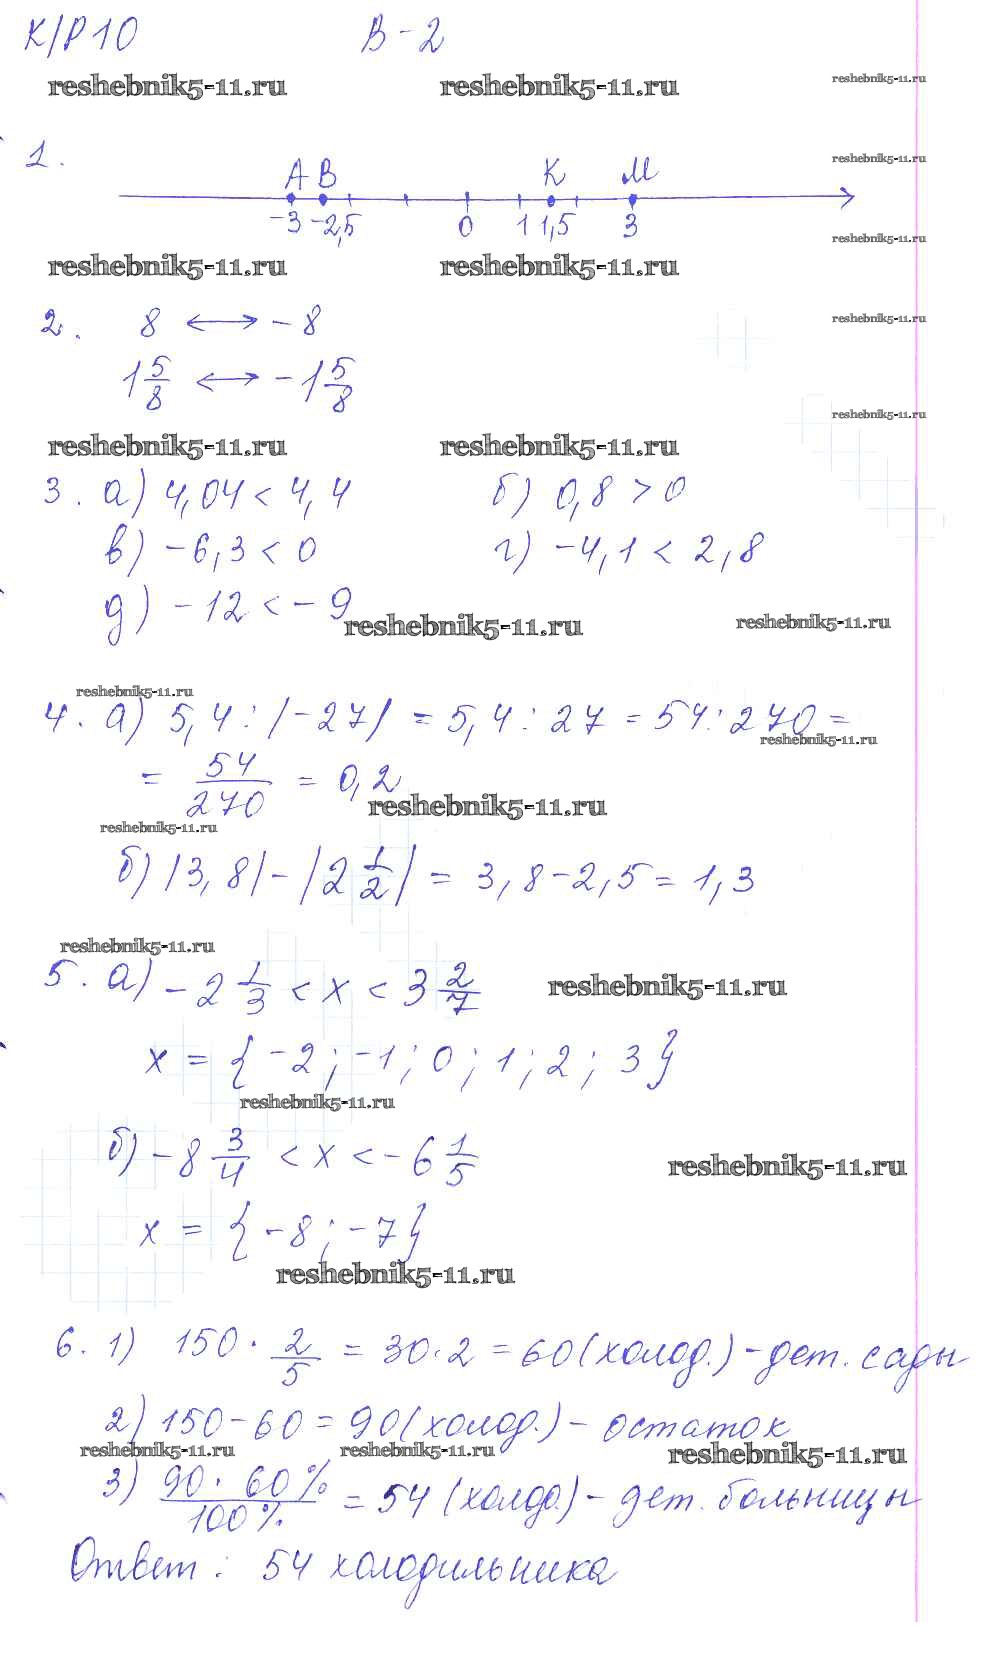 К/Р 10 В-2
reshebnik5-11.ru reshebnik5-11.ru reshebnik5-11.ru
1. reshebnik5-11.ru
А В К М
-3 -2,5 0 1 1,5 3
reshebnik5-11.ru
reshebnik5-11.ru reshebnik5-11.ru
2. 8 ↔ -8 reshebnik5-11.ru
1 5/8 ↔ -1 5/8
reshebnik5-11.ru
reshebnik5-11.ru reshebnik5-11.ru
3. а) 4,04 < 4,4 б) 0,8 > 0
в) -6,3 < 0 г) -4,1 < 2,8
д) -12 < -9
reshebnik5-11.ru reshebnik5-11.ru
reshebnik5-11.ru
4. а) 5,4 : |-27| = 5,4 : 27 = 54 : 270 =
reshebnik5-11.ru
= 54/270 = 0,2
reshebnik5-11.ru
reshebnik5-11.ru
б) |3,8| - |2 1/2| = 3,8 - 2,5 = 1,3
reshebnik5-11.ru
5. а) -2 1/3 < x < 3 2/7 reshebnik5-11.ru
x = {-2; -1; 0; 1; 2; 3}
reshebnik5-11.ru
б) -8 3/4 < x < -6 1/5 reshebnik5-11.ru
x = {-8; -7}
reshebnik5-11.ru
6. 1) 150 · 2/5 = 30·2 = 60 (холод.) - дет. сады
2) 150 - 60 = 90 (холод.) - остаток
reshebnik5-11.ru reshebnik5-11.ru reshebnik5-11.ru
3) 90 · 60% / 100% = 54 (холдо.) - дет. больницы
Ответ: 54 холодильника